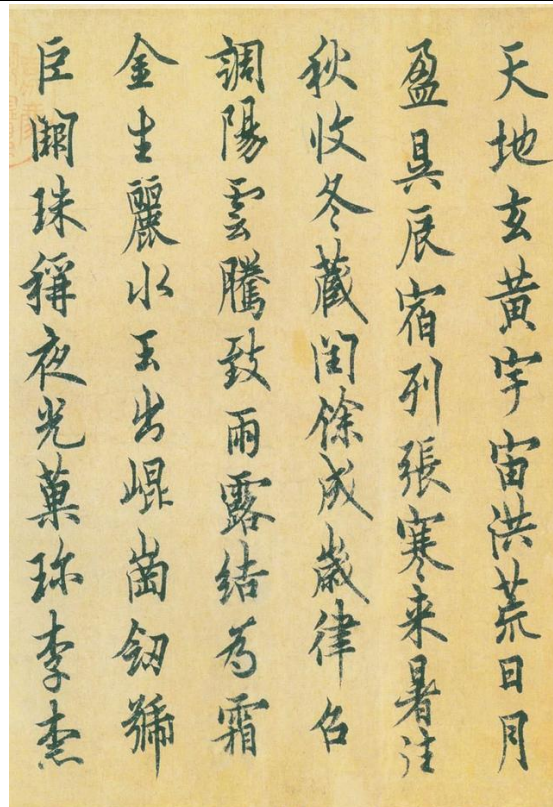 天地玄黃宇宙洪荒日月
盈昃辰宿列張寒来暑往
秋收冬蔵閏餘成歲律呂
調陽雲騰致雨露結為霜
金生麗水玉出崐崗劔號
巨闕珠稱夜光菓珎李柰